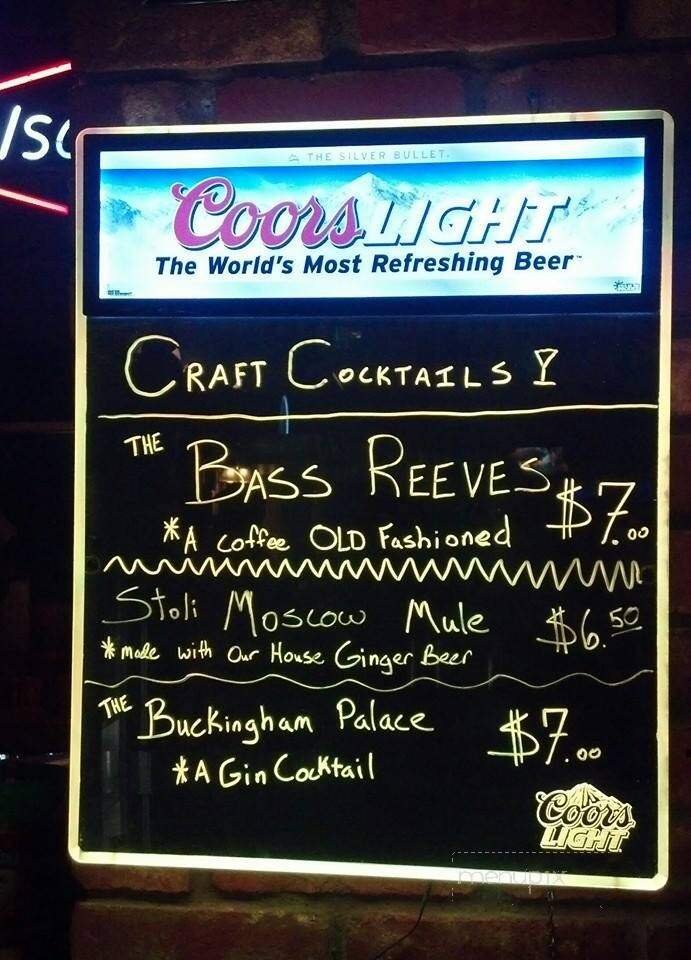 THE SILVER BULLET.
Coors LIGHT
The World's Most Refreshing Beer™
CRAFT COCKTAILS
THE BASS REEVES $7.00
*A coffee OLD Fashioned
Stoli Moscow Mule $6.50
*made with Our House Ginger Beer
THE Buckingham Palace $7.00
*A Gin Cocktail
Coors
LIGHT
menupix